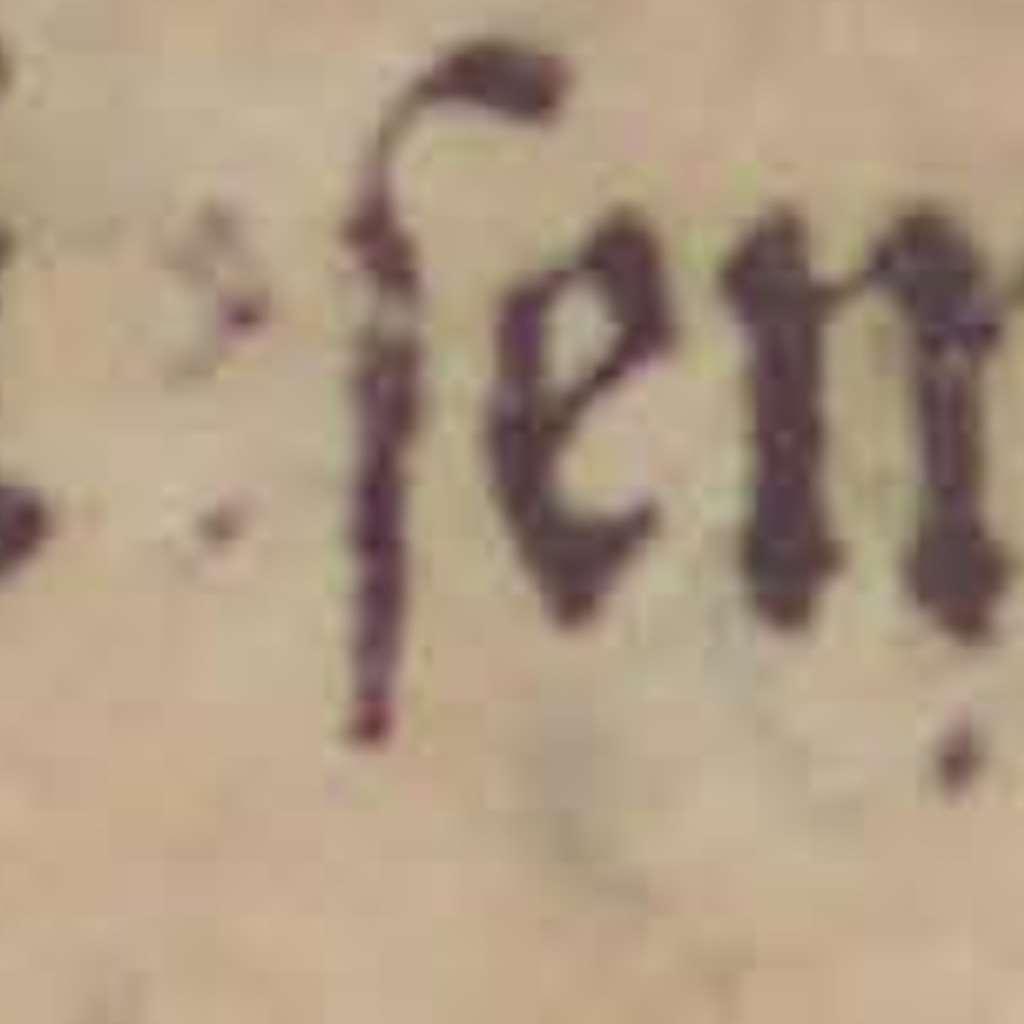 ſen